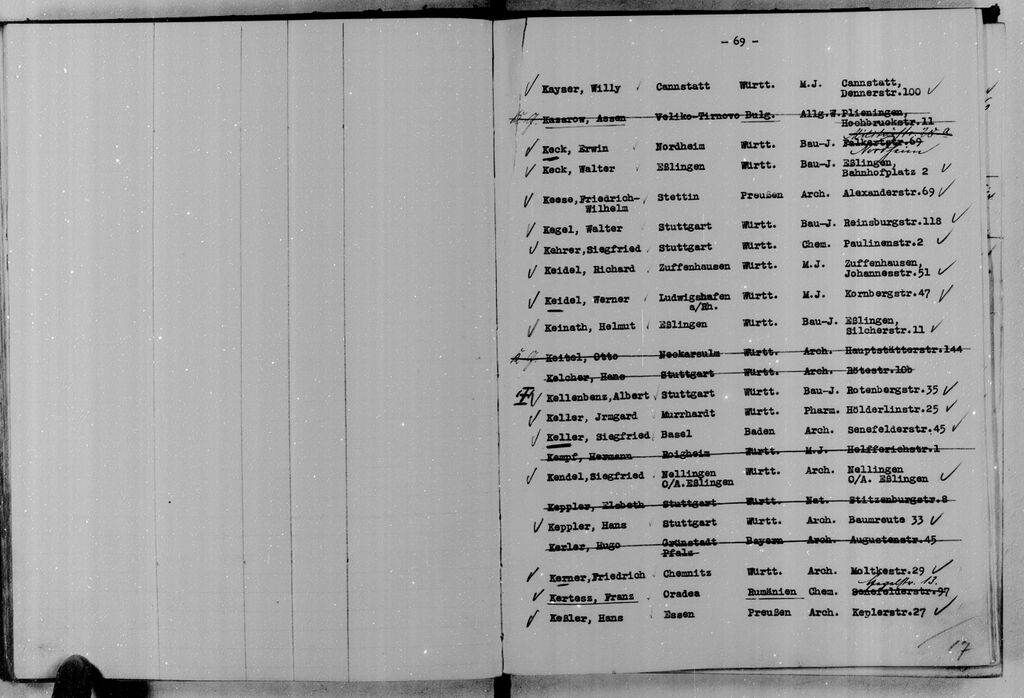 - 69 -
Kayser, Willy Cannstatt Württ. M.J. Cannstatt,
Dennerstr.100
Kasarow, Assen Veliko-Tirnovo Bulg. Allg.W. Plieningen,
Hochbruckstr.11
Keck, Erwin Nordheim Württ. Bau-J. Falkertstr.69
Nordheim
Keck, Walter Eßlingen Württ. Bau-J. Eßlingen,
Bahnhofplatz 2
Keese, Friedrich- Stettin Preußen Arch. Alexanderstr.69
Wilhelm
Kegel, Walter Stuttgart Württ. Bau-J. Reinsburgstr.118
Kehrer, Siegfried Stuttgart Württ. Chem. Paulinenstr.2
Keidel, Richard Zuffenhausen Württ. M.J. Zuffenhausen,
Johannesstr.51
Keidel, Werner Ludwigshafen Württ. M.J. Kornbergstr.47
a/Rh.
Keinath, Helmut Eßlingen Württ. Bau-J. Eßlingen,
Silcherstr.11
Keitel, Otto Neckarsulm Württ. Arch. Hauptstätterstr.144
Kelcher, Hans Stuttgart Württ. Arch. Rötestr.10b
Kellenbenz, Albert Stuttgart Württ. Bau-J. Rotenbergstr.35
Keller, Jrmgard Murrhardt Württ. Pharm. Hölderlinstr.25
Keller, Siegfried Basel Baden Arch. Senefelderstr.45
Kempf, Hermann Roigheim Württ. M.J. Helfferichstr.1
Kendel, Siegfried Nellingen Württ. Arch. Nellingen
O/A.Eßlingen O/A. Eßlingen
Keppler, Elsbeth Stuttgart Württ. Nat. Stitzenburgstr.8
Keppler, Hans Stuttgart Württ. Arch. Baumreute 33
Kerler, Hugo Grünstadt Bayern Arch. Augustenstr.45
Pfalz
Kerner, Friedrich Chemnitz Württ. Arch. Moltkestr.29
Kertesz, Franz Oradea Rumänien Chem. Senefelderstr.97
Keßler, Hans Essen Preußen Arch. Keplerstr.27
17